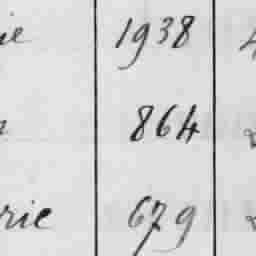 ie 1938
864
rie 679